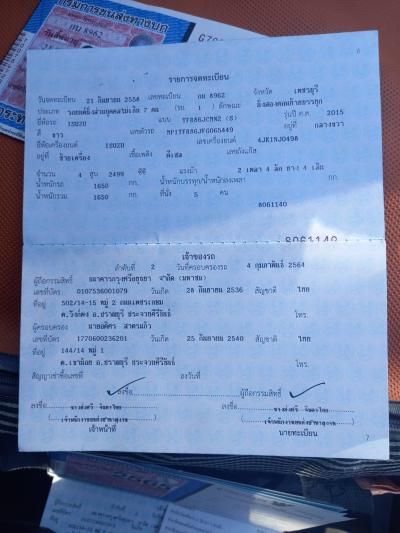 กรมการขนส่งทางบก
กบ 8962
6
รายการจดทะเบียน
วันจดทะเบียน 21 กันยายน 2558 เลขทะเบียน กบ 8962 จังหวัด เพชรบุรี
ประเภท รถยนต์นั่งส่วนบุคคลไม่เกิน 7 คน (รย. 1) ลักษณะ
ยี่ห้อรถ ISUZU แบบ รุ่นปี ค.ศ. 2015
สี ขาว เลขตัวรถ อยู่ที่ กลางขวา
ยี่ห้อเครื่องยนต์ ISUZU เลขเครื่องยนต์ 4JK1NJ0498
อยู่ที่ ซ้ายเครื่อง เชื้อเพลิง ดีเซล เลขถังแก๊ส
จำนวน 4 สูบ 2499 ซีซี แรงม้า 2 เพลา 4 ล้อ ยาง 4 เส้น
น้ำหนักรถ 1650 กก. น้ำหนักบรรทุก/น้ำหนักลงเพลา กก.
น้ำหนักรวม 1650 กก. ที่นั่ง 5 คน
8061140
8061140
เจ้าของรถ
ลำดับที่ 2 วันที่ครอบครองรถ 4 กุมภาพันธ์ 2564
ผู้ถือกรรมสิทธิ์ ธนาคารกรุงศรีอยุธยา จำกัด (มหาชน)
เลขที่บัตร 0107536001079 วันเกิด 28 กันยายน 2536 สัญชาติ ไทย
ที่อยู่ 502/14-15 หมู่ 2 ถนนเพชรเกษม
ต.วังก์พง อ.ปราณบุรี ประจวบคีรีขันธ์ โทร.
ผู้ครอบครอง นายอดิศร
เลขที่บัตร 1770600236201 วันเกิด 25 กันยายน 2540 สัญชาติ ไทย
ที่อยู่ 144/14 หมู่ 1
ต.เขาน้อย อ.ปราณบุรี ประจวบคีรีขันธ์ โทร.
สัญญาเช่าซื้อเลขที่ ลงวันที่
ลงชื่อ ผู้ถือกรรมสิทธิ์
ลงชื่อ ลงชื่อ
เจ้าหน้าที่ นายทะเบียน
7